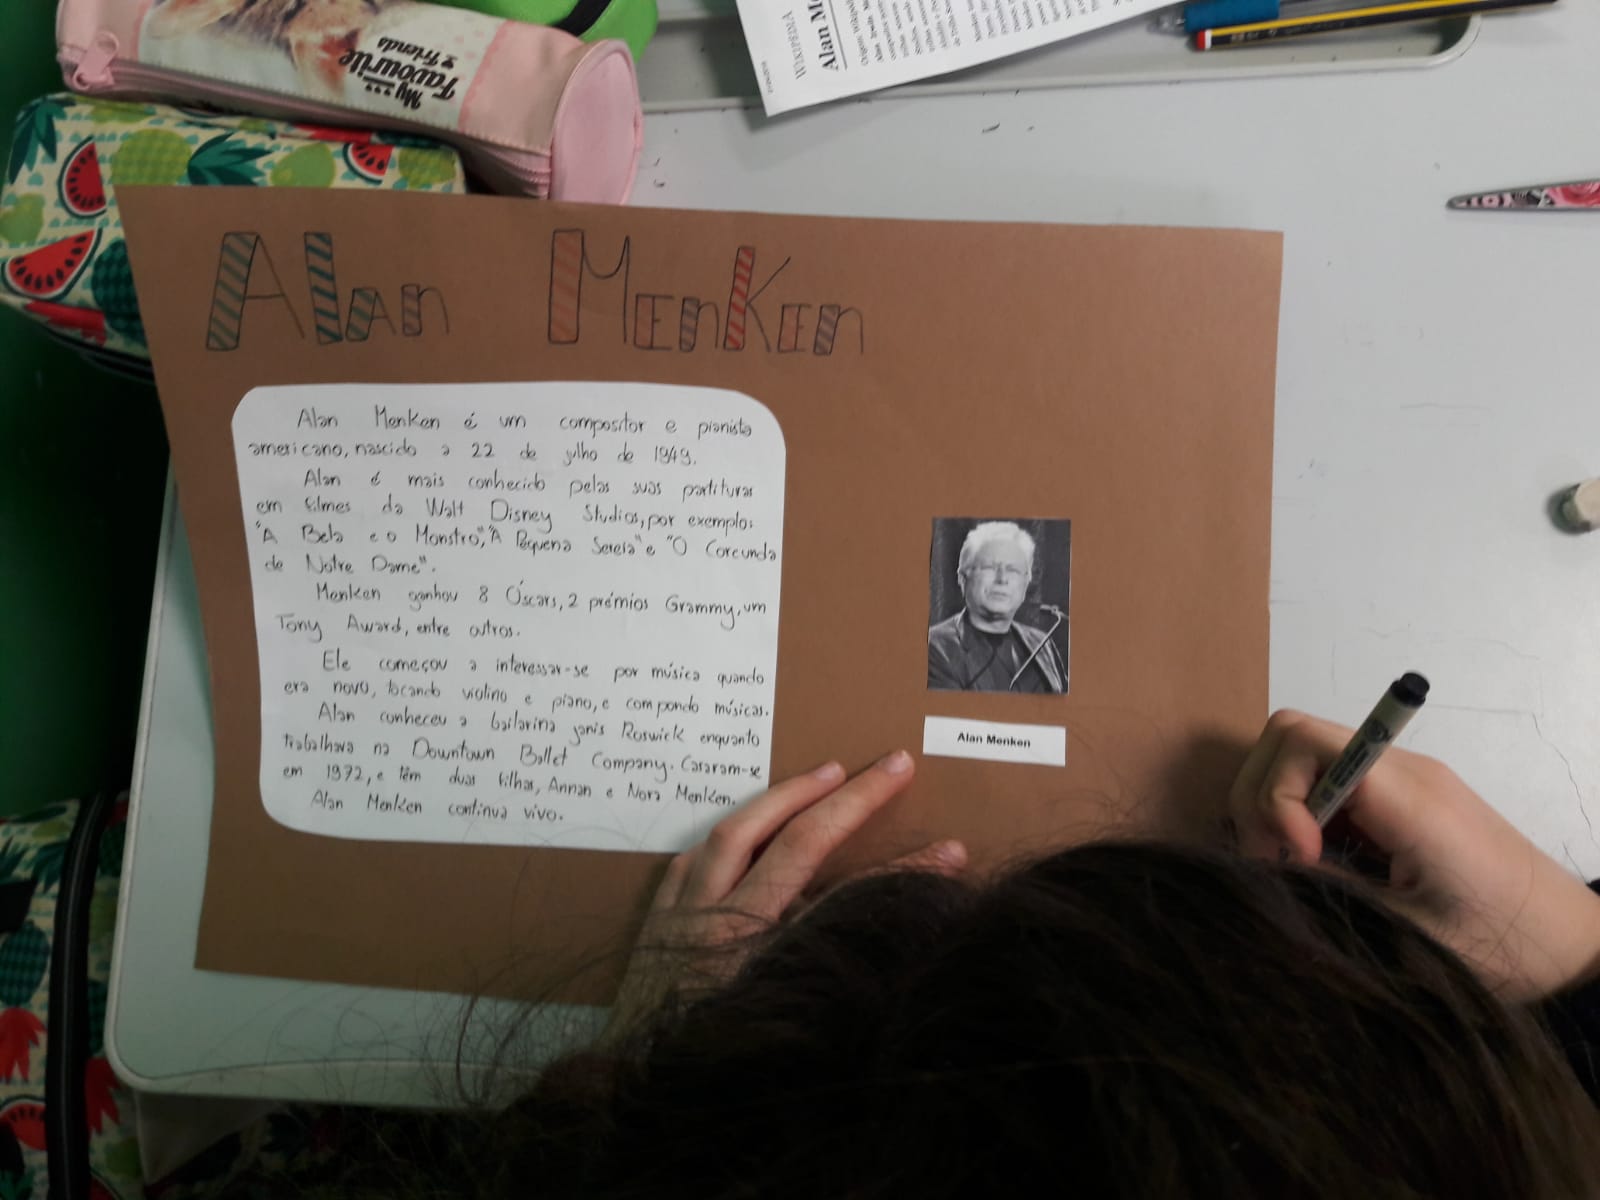 My
Favourite
Friends
WIKIPÉDIA
Alan M
Alan Menken
Alan Menken é um compositor e pianista
americano, nascido a 22 de julho de 1949.
Alan é mais conhecido pelas suas partituras
em filmes da Walt Disney Studios, por exemplo:
"A Bela e o Monstro", "A Pequena Sereia" e "O Corcunda
de Notre Dame".
Menken ganhou 8 Óscars, 2 prémios Grammy, um
Tony Award, entre outros.
Ele começou a interessar-se por música quando
era novo, tocando violino e piano, e compondo músicas.
Alan conheceu a bailarina Janis Roswick enquanto
trabalhava na Downtown Ballet Company. Casaram-se
em 1972, e têm duas filhas, Annan e Nora Menken.
Alan Menken continua vivo.
Alan Menken